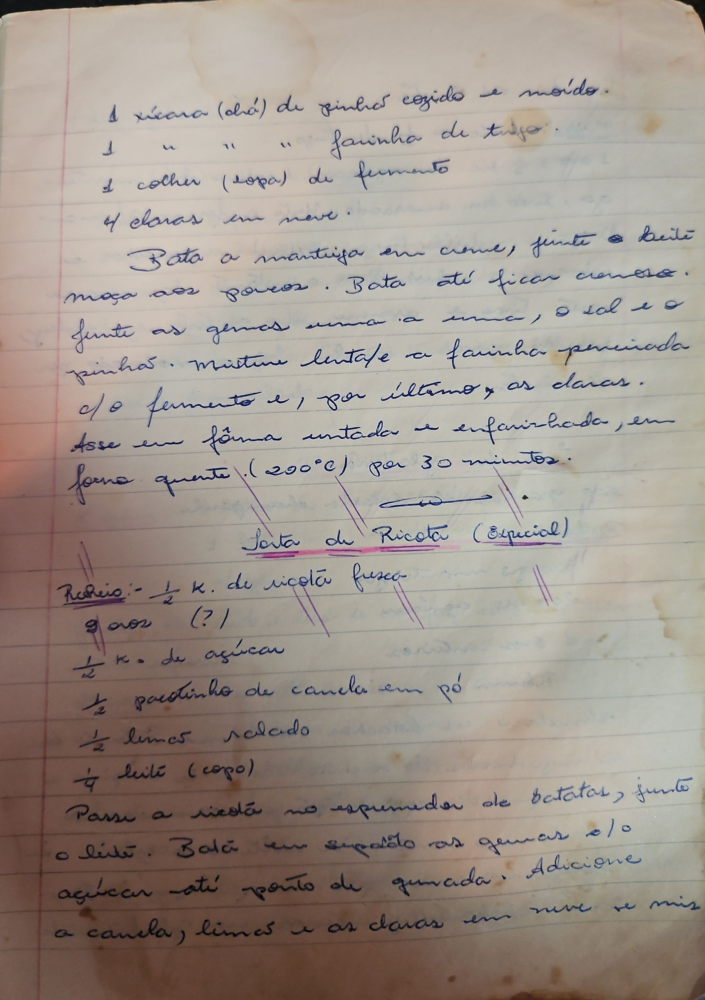 1 xícara (chá) de pinhão cozido e moído.
1 " " " farinha de trigo.
1 colher (sopa) de fermento
4 claras em neve.
Bata a manteiga em creme, junte o leite
moça aos poucos. Bata até ficar cremoso.
Junte as gemas uma a uma, o sal e o
pinhão. Misture lenta/e a farinha peneirada
c/o fermento e, por último, as claras.
Asse em fôrma untada e enfarinhada, em
forno quente (200°C) por 30 minutos.
Torta de Ricota (Especial)
Recheio:- 1/2 k. de ricota fresca
9 ovos (?)
1/2 k. de açúcar
1/2 pacotinho de canela em pó
1/2 limão ralado
1/4 leite (copo)
Passe a ricota no espremedor de batatas, junte
o leite. Bata em as gemas c/o
açúcar até ponto de gemada. Adicione
a canela, limão e as claras em neve e mis